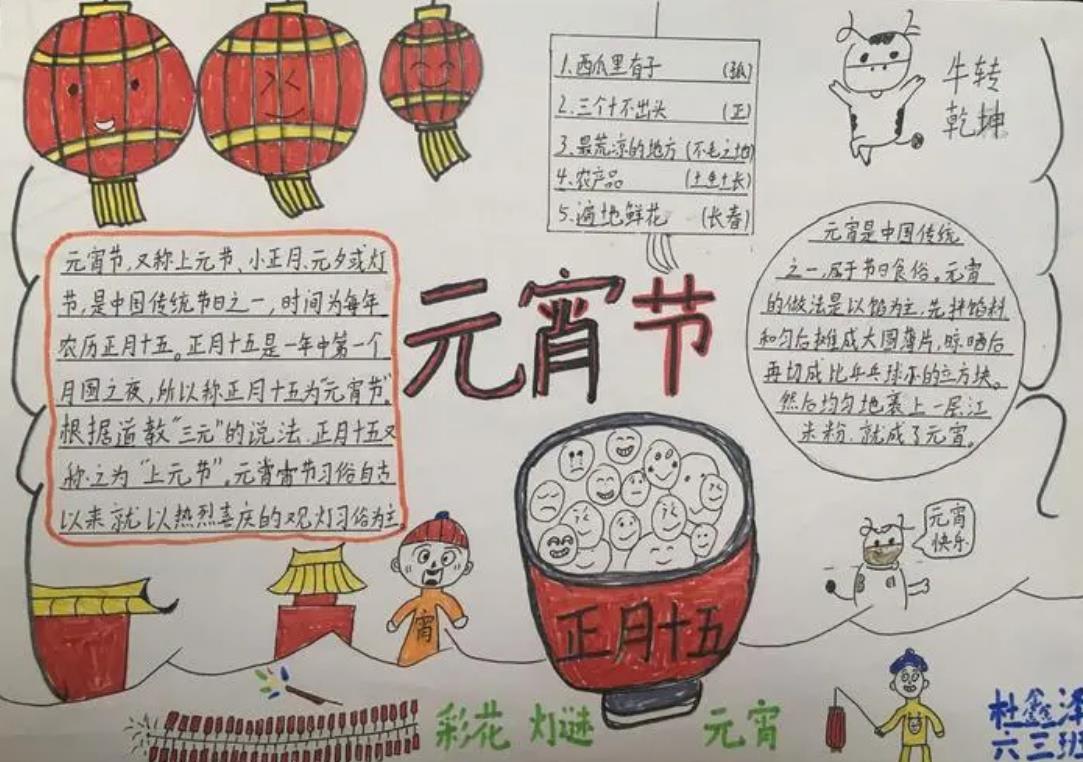 1.西瓜里有子 (孤)
2.三个十不出头 (正)
3.最荒凉的地方 (不毛之地)
4.农产品 (土生土长)
5.遍地鲜花 (长春)
牛转
乾坤
元宵节,又称上元节、小正月、元夕或灯
节,是中国传统节日之一,时间为每年
农历正月十五。正月十五是一年中第一个
月圆之夜,所以称正月十五为“元宵节”。
根据道教“三元”的说法,正月十五又
称之为“上元节”。元宵宵节习俗自古
以来就以热烈喜庆的观灯习俗为主。
元宵节
元宵是中国传统
之一,属于节日食俗。元宵
的做法是以馅为主,先拌馅料
和匀后摊成大圆薄片,晾晒后
再切成比乒乓球小的立方块。
然后均匀地裹上一层江
米粉,就成了元宵。
元宵
快乐
宵
正月十五
彩花 灯谜 元宵
杜鑫泽
六三班